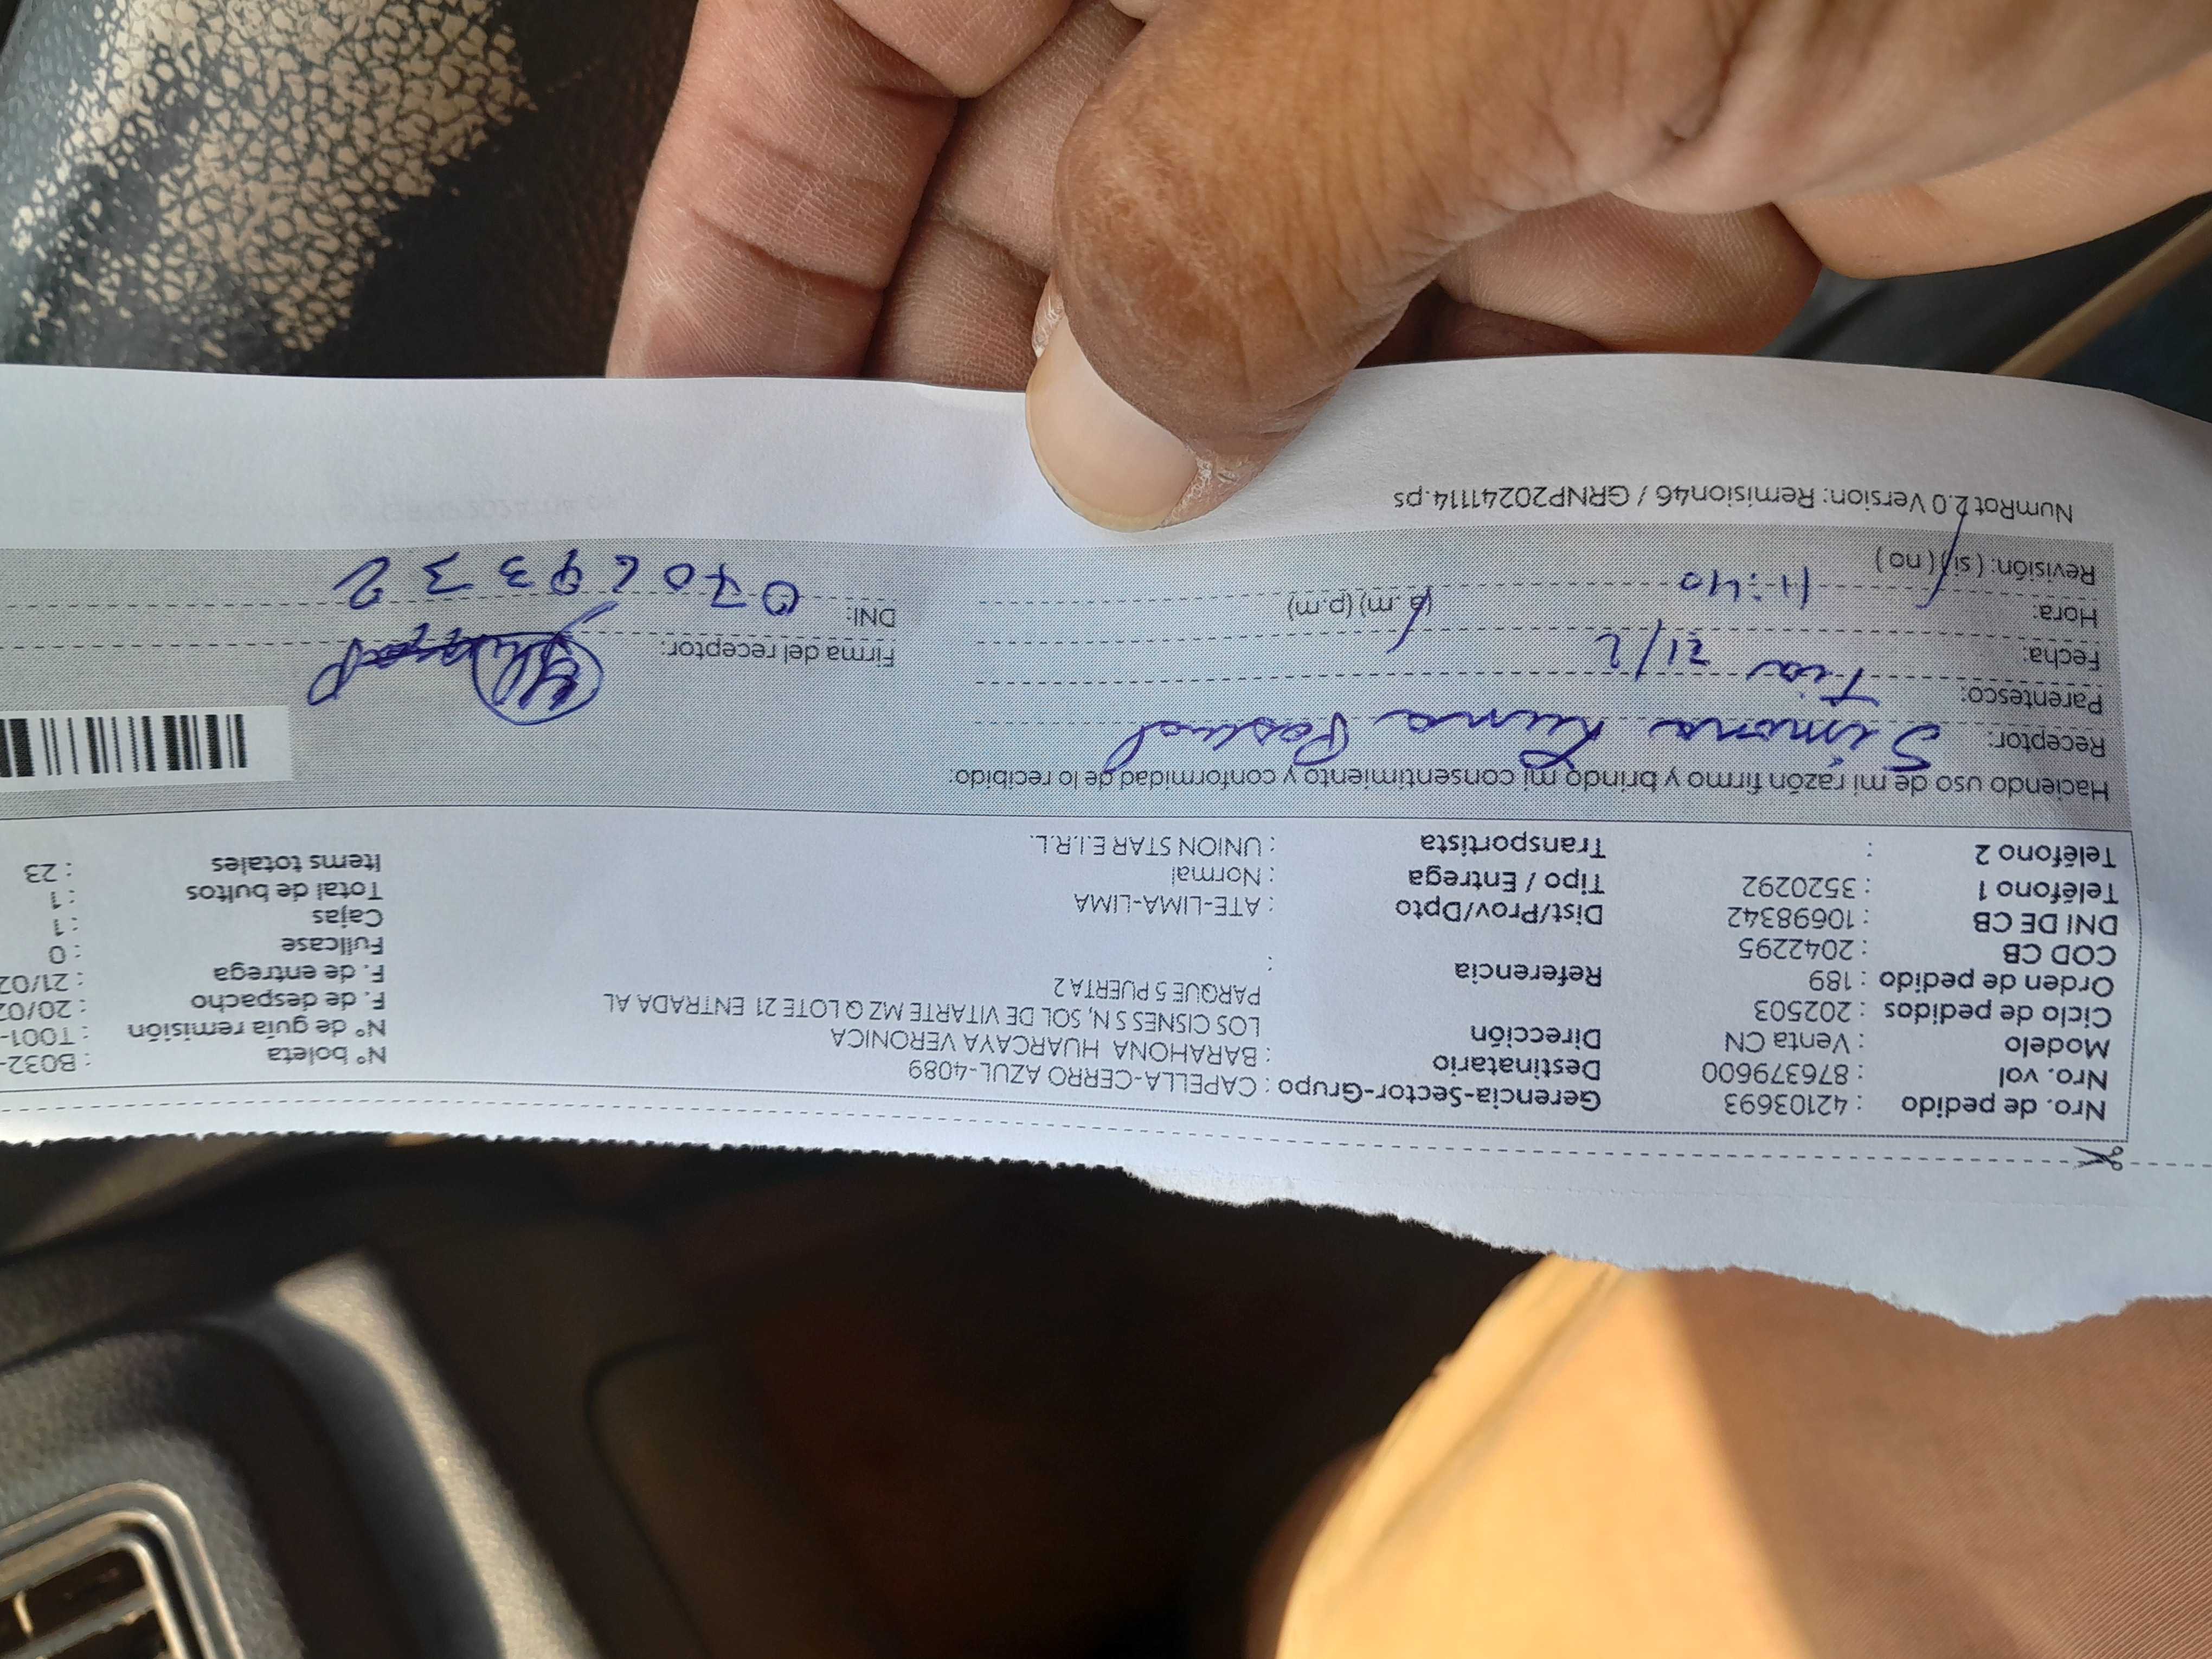 Nro. de pedido : 42103693 Gerencia-Sector-Grupo : CAPELLA-CERRO AZUL-4089 N° boleta : B032-
Nro. vol : 876379600 Destinatario : BARAHONA HUARCAYA VERONICA N° de guía remisión : T001-
Modelo : Venta CN Dirección LOS CISNES S N, SOL DE VITARTE MZ Q LOTE 21 ENTRADA AL F. de despacho : 20/02
Ciclo de pedidos : 202503 PARQUE 5 PUERTA 2 F. de entrega : 21/02
Orden de pedido : 189 Referencia : Fullcase : 0
COD CB : 2042295 Cajas : 1
DNI DE CB : 10698342 Dist/Prov/Dpto : ATE-LIMA-LIMA Total de bultos : 1
Teléfono 1 : 3520292 Tipo / Entrega : Normal Items totales : 23
Teléfono 2 : Transportista : UNION STAR E.I.R.L.
Haciendo uso de mi razón firmo y brindo mi consentimiento y conformidad de lo recibido:
Receptor: Simona
Parentesco: Tia
Fecha: 21/2 Firma del receptor:
Hora: 11:40 (a.m) (p.m) DNI: 07069332
Revisión: ( si ) ( no )
NumRot 2.0 Version: Remision46 / GRNP20241114.ps